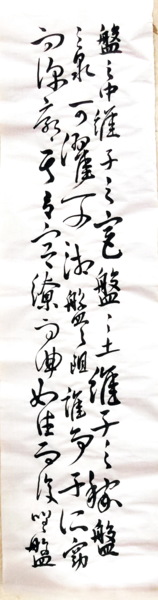 盤之中維子之宮盤之土維子之稼盤
之泉可濯可湘盤之阻誰爭子所窈
而深廓其有容繚而曲如往而復嗟盤